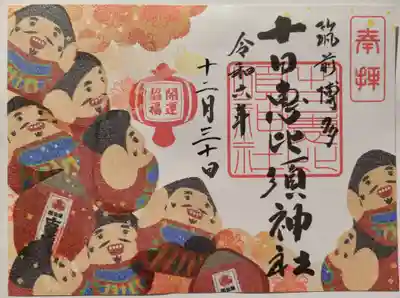 奉拝
筑前博多
十日恵比須神社
令和六年
十二月三十日
開運
招福